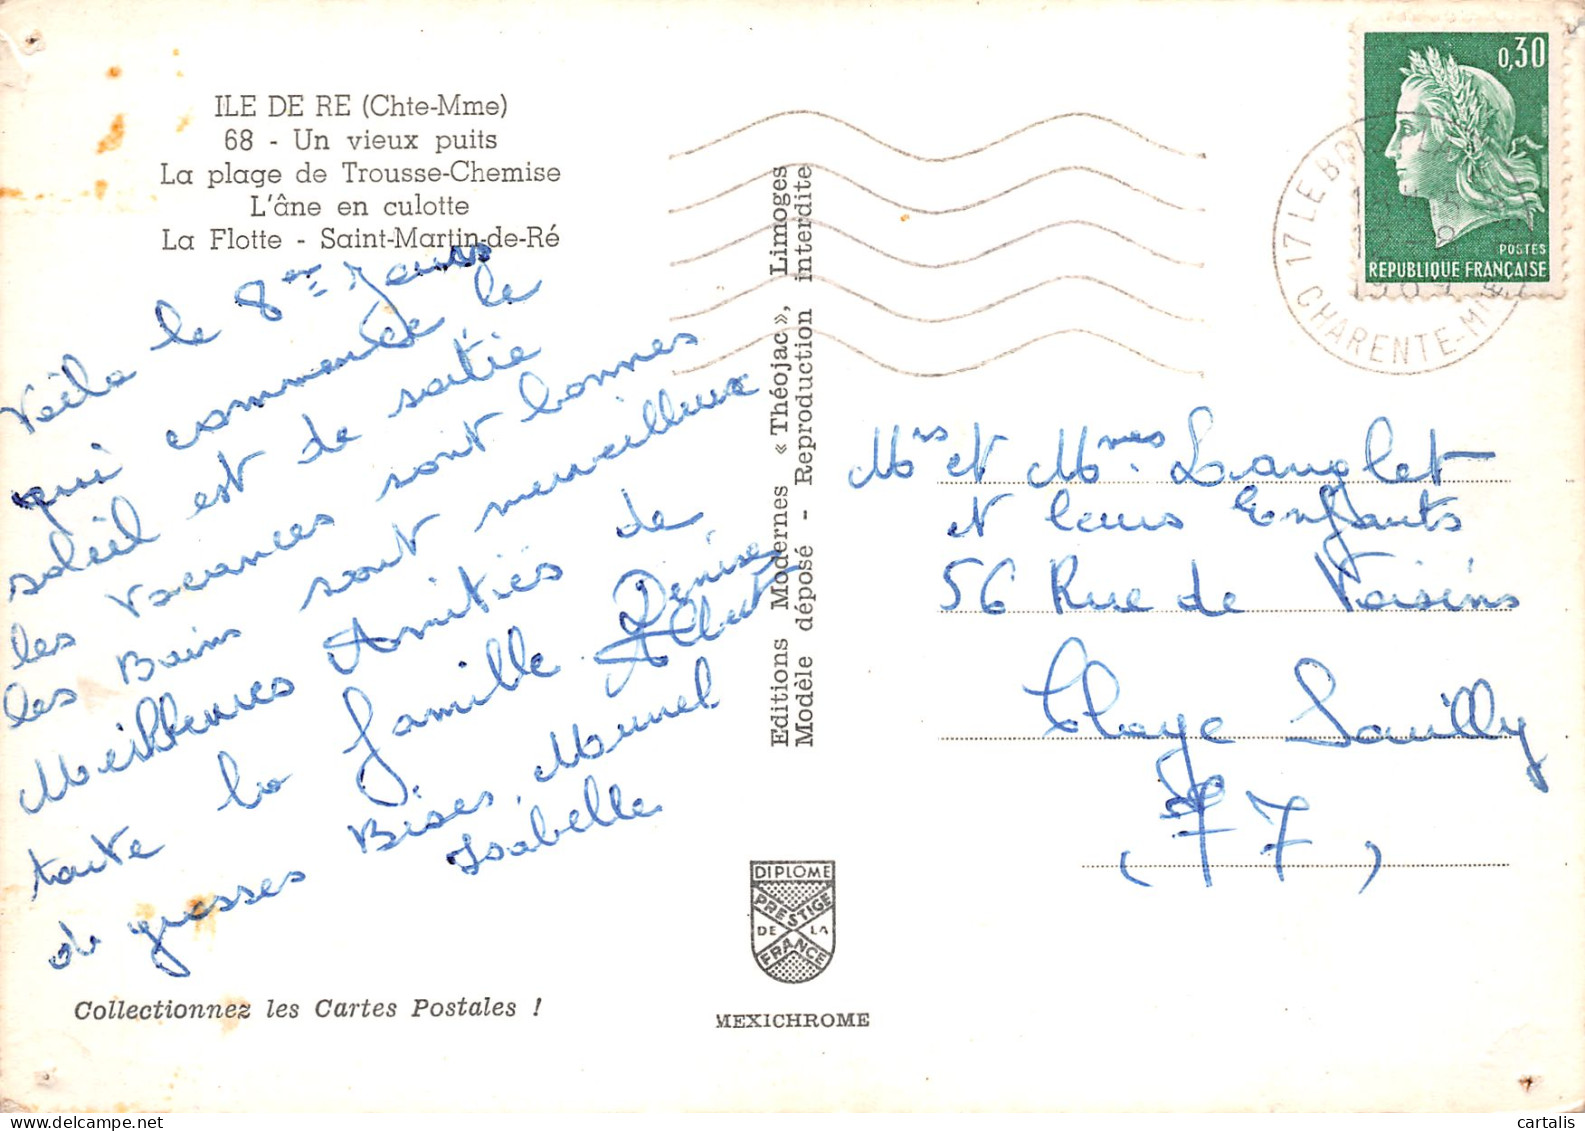 ILE DE RE (Chte-Mme)
68 - Un vieux puits
La plage de Trousse-Chemise
L'âne en culotte
La Flotte - Saint-Martin-de-Ré
Voila le 8er Jours
qui commence le
soleil est de sortie
les vacances sont bonnes
les Bains sont merveilleux
Meilleures Amitiés de
toute la famille Denise Albert
de grosses Bises. Muriel
Isabelle
Collectionnez les Cartes Postales !
Editions Modernes « Théojac », Limoges
Modèle déposé - Reproduction interdite
DIPLOME
PRESTIGE
DE LA
FRANCE
MEXICHROME
0,30
POSTES
REPUBLIQUE FRANÇAISE
17 LE BOIS
CHARENTE-MME
Mrs et Mmes Langlet
et leurs Enfants
56 Rue de Voisins
Claye Souilly
(77)
cartalis